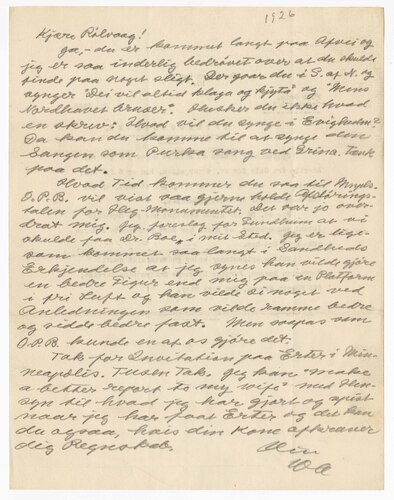 1926
Kjære Rölvaag!
Ja, - du er kommet langt paa Afvei og
jeg er saa inderlig bedrövet over at du skulde
finde paa noget sligt. Der gaar du i S. af N. og
synger "Dei vil altid klaga og kyta" og "Mens
Nordhavet bruser". Husker du ikke hvad
en skrev: Hvad vil du synge i Evigheden?
Da kan du komme til at synge den
Sangen som Purka sang ved Grina. Tænk
paa det.
Hvad Tid kommer du saa til Mpls.
O.P.B. vil vist saa gjerne holde
talen for Heg-Monumentet. Den var jo over-
drat mig. Jeg foreslog for Sundheim at vi
skulde faa Dr. Böe, i mit Sted. Jeg er lige-
som kommet saa langt i Sandheds
Erkjendelse at jeg synes han vilde gjöre
en bedre Figur end mig paa en Platform
i fri Luft og han vilde si noget ved
Anledningen som vilde ramme bedre
og sidde bedre fast. Men saapas som
O.P.B. kunde en af os gjöre det.
Tak for Invitation paa Erter i Min-
neapolis. Tusen Tak. Jeg kan "make
a better report to my wife" med Hen-
syn til hvad jeg har gjort og spist
naar jeg har faat Erter og du kan
du ogsaa, hvis din Kone afkræver
dig Regnskab.
Din
WA